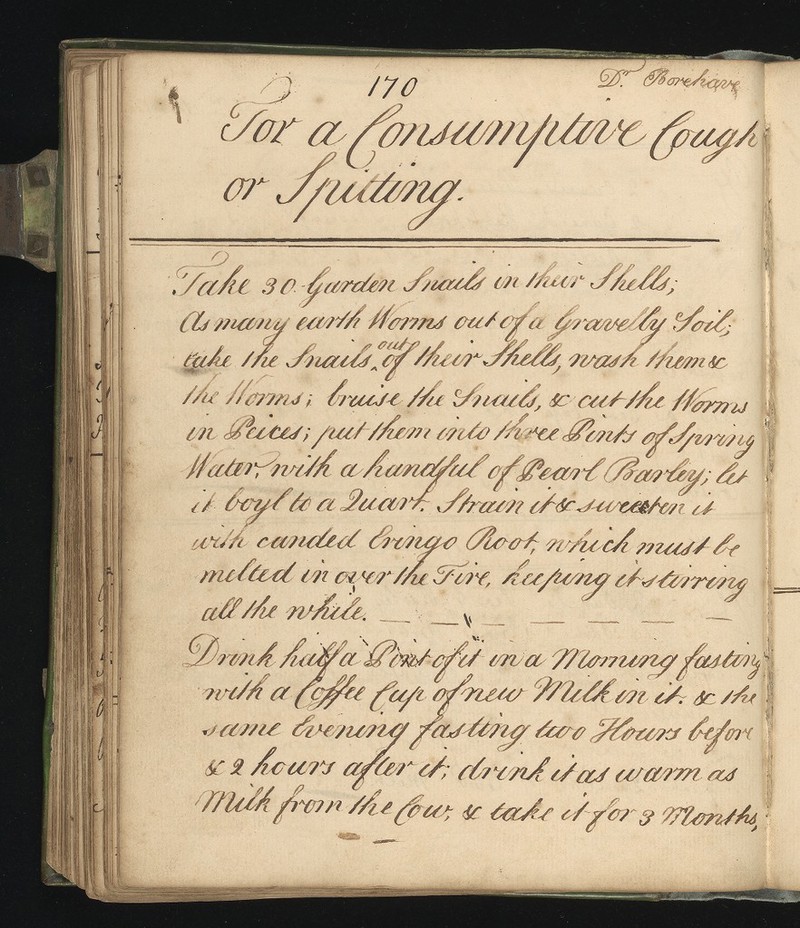 170
Dr. Borehave
For a Consumptive Cough
or Spitting.
Take 30 Garden Snails in their Shells;
As many earth Worms out of a Gravelly Soil;
take the Snails out of their Shells, wash them &
the Worms; bruise the Snails, & cut the Worms
in Peices; put them into three Pints of Spring
Water, with a handful of Pearl Barley; let
it boyl to a Quart. Strain it & sweeten it
with canded Eringo Root, which must be
melted in over the Fire, keeping it stirring
all the while. — — — — — — —
Drink half a Pint of it in a Morning fasting
with a Coffee Cup of new Milk in it. & the
same Evening fasting two Hours before
& 2 hours after it; drink it as warm as
Milk from the Cow, & take it for 3 Months,